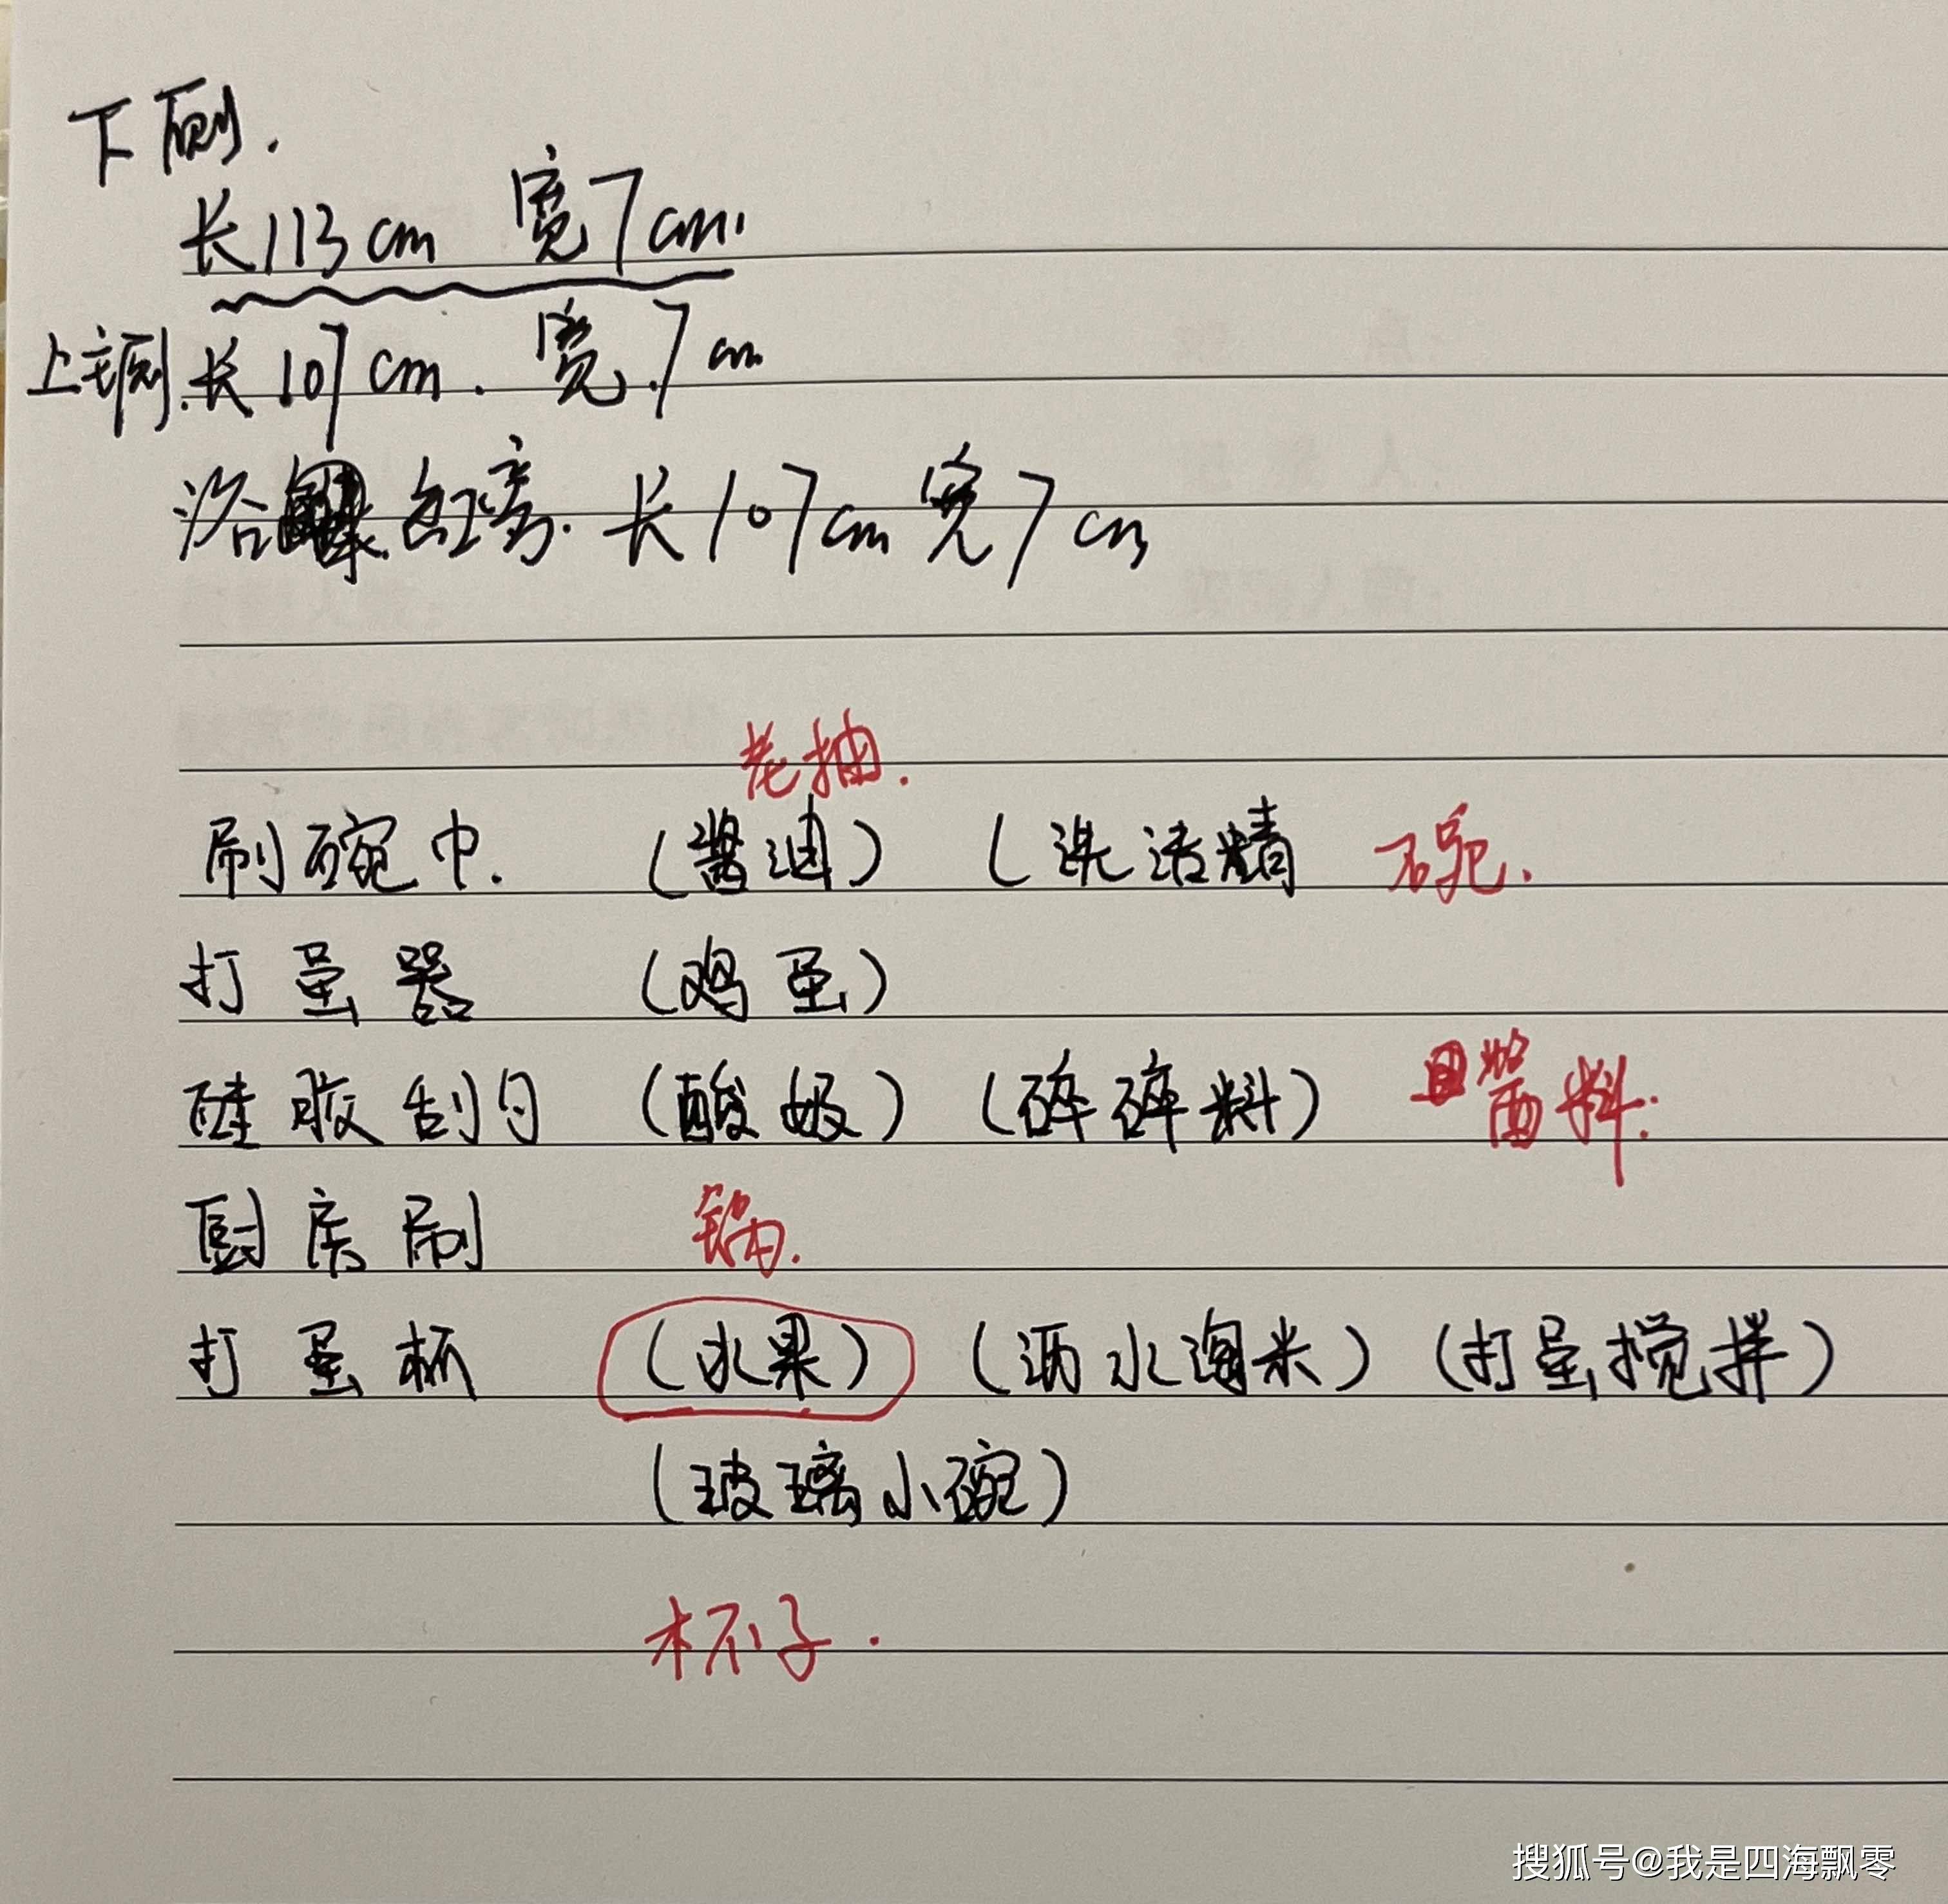 下厕.
长113cm 宽7cm.
上主厕.长107cm.宽.7cm
浴缸旁.长107cm宽7cm
老抽.
刷碗巾. (酱油) (洗洁精 碗.
打蛋器 (鸡蛋)
硅胶刮勺 (酸奶) (碎碎料) 酱料.
厨房刷 锅.
打蛋杯 (水果) (沥水淘米) (打蛋搅拌)
(玻璃小碗)
杯子.
搜狐号@我是四海飘零